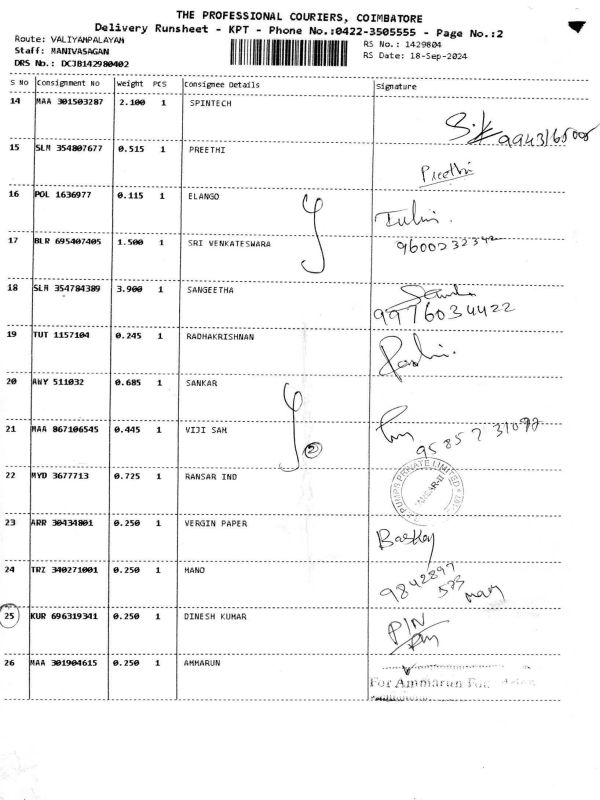 THE PROFESSIONAL COURIERS, COIMBATORE
Delivery Runsheet - KPT - Phone No.:0422-3505555 - Page No.:2
Route: VALIYAMPALAYAM
RS No.: 1429804
Staff: MANIVASAGAN
RS Date: 18-Sep-2024
DRS No.: DCJB142980402
S No Consignment No Weight PCS Consignee Details Signature
14 MAA 301503287 2.100 1 SPINTECH
15 SLM 354807677 0.515 1 PREETHI
Preethi
16 POL 1636977 0.115 1 ELANGO
17 BLR 695407405 1.500 1 SRI VENKATESWARA
9600232342
18 SLM 354784389 3.900 1 SANGEETHA
9976034422
19 TUT 1157104 0.245 1 RADHAKRISHNAN
20 AWY 511032 0.685 1 SANKAR
21 MAA 867106545 0.445 1 VIJI SAM
2
22 MYD 3677713 0.725 1 RANSAR IND
PUMPS PRIVATE LIMITED
23 ARR 30434801 0.250 1 VERGIN PAPER
Baskey
24 TRZ 340271001 0.250 1 MANO
9842897
575
25 KUR 696319341 0.250 1 DINESH KUMAR
P/N
26 MAA 301904615 0.250 1 AMMARUN
For Ammarun